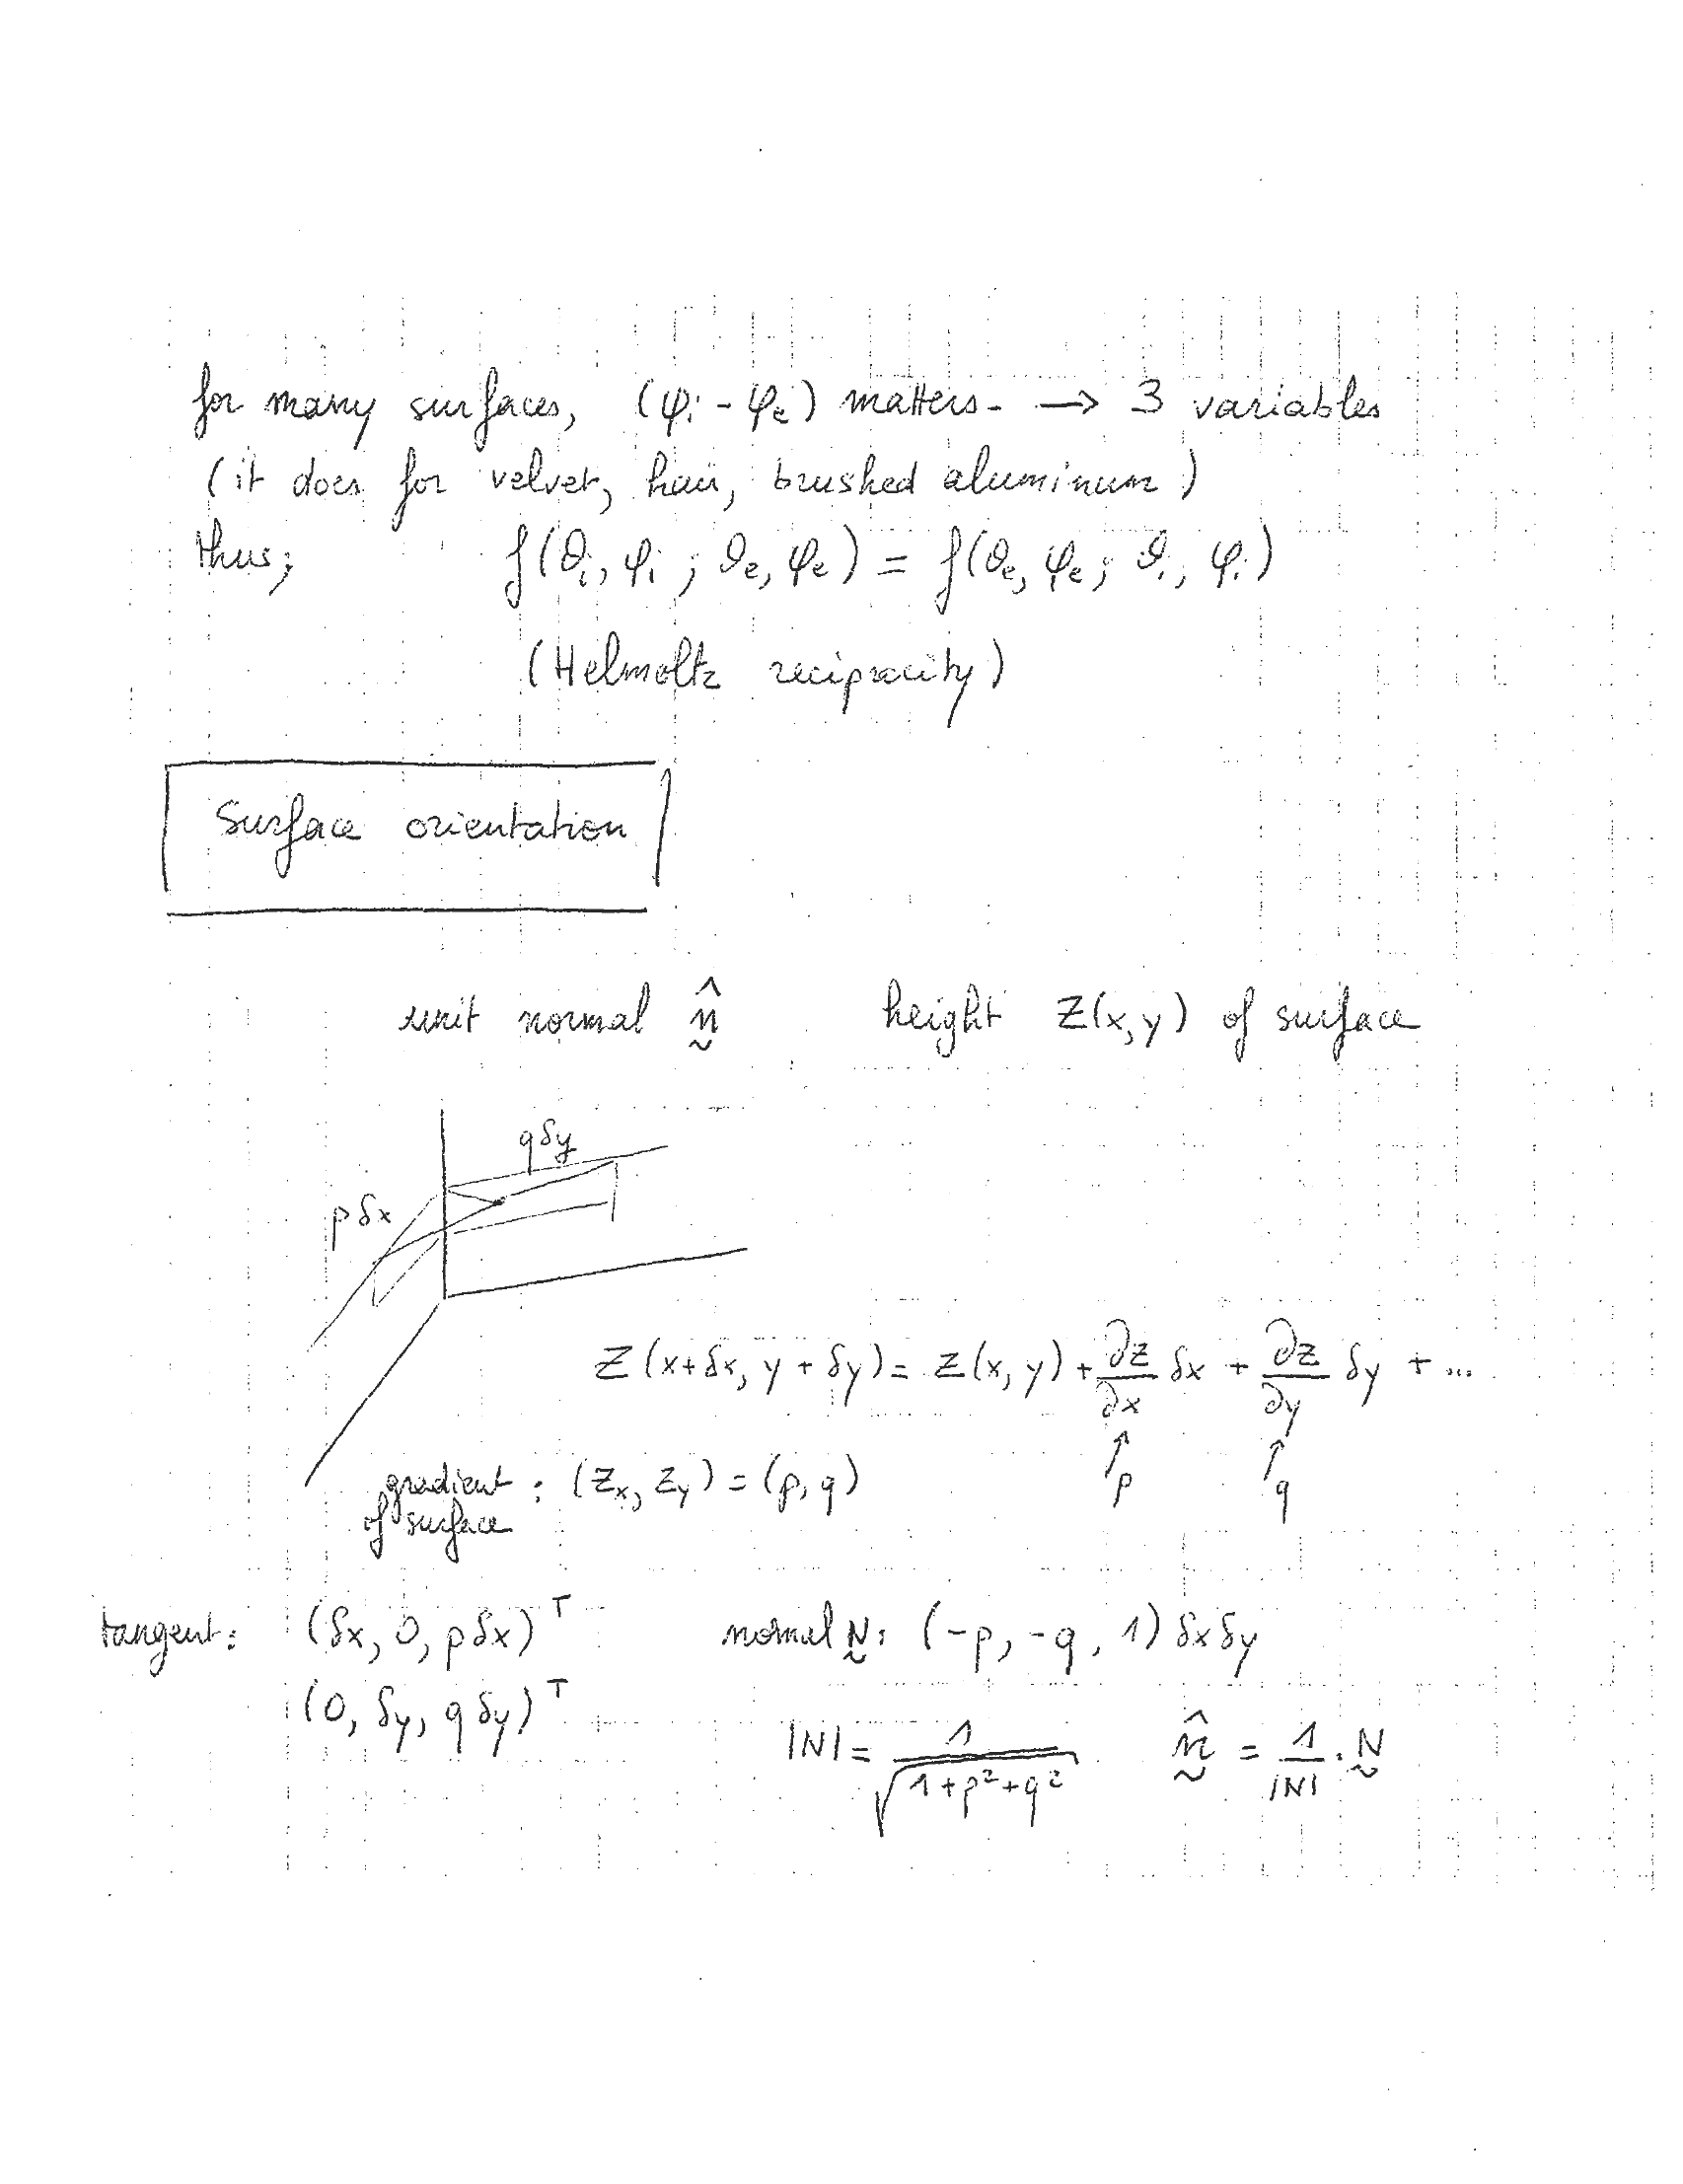 for many surfaces, (φi - φe) matters. → 3 variables
(it does for velvet, hair, brushed aluminum)
thus; f(θi, φi ; θe, φe) = f(θe, φe ; θi, φi)
(Helmoltz reciprocity)
Surface orientation
unit normal n̂ height Z(x,y) of surface
qδy
pδx
Z(x+δx, y+δy) = Z(x,y) + ∂z/∂x δx + ∂z/∂y δy + ...
↑ p ↑ q
gradient of surface : (Zx, Zy) = (p, q)
tangent: (δx, 0, pδx)ᵀ normal N: (-p, -q, 1) δxδy
(0, δy, qδy)ᵀ
|N| = 1/√(1+p²+q²) n̂ = 1/|N| · N